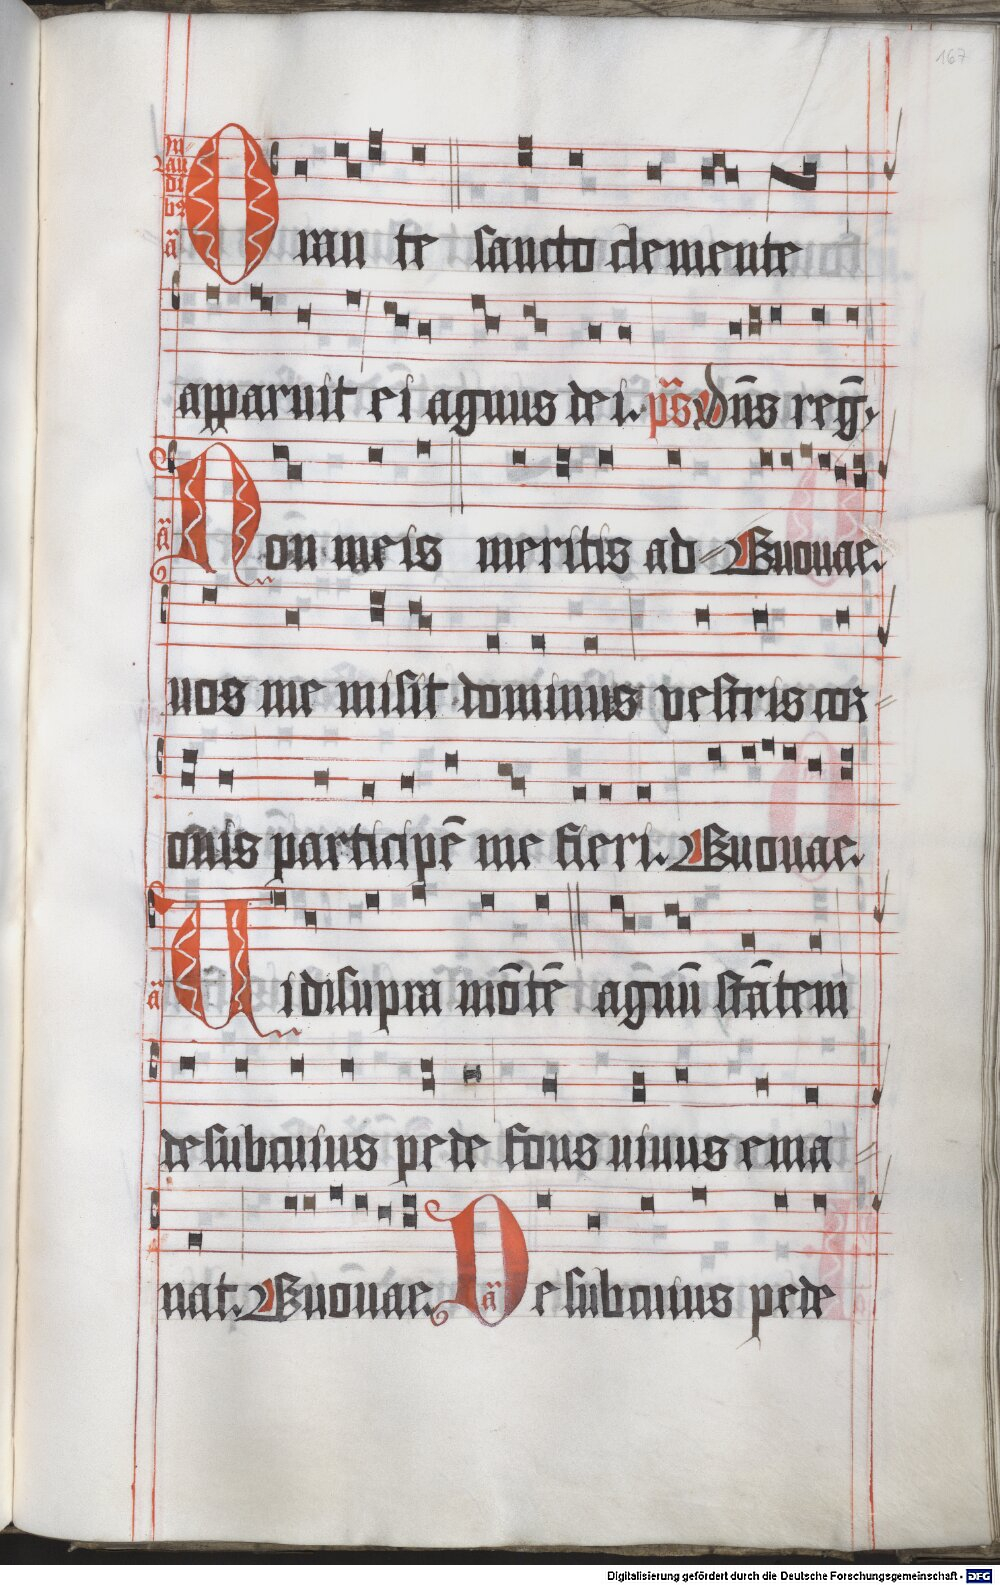 167
In
lau
di
bs
a
Oran te sancto clemente
apparuit ei agnus dei. ps Dn̄s reg̅
a Non meis meritis ad= Euouae.
uos me misit dominus vestris cor=
onis participē me fieri. Euouae.
a Uidi supra mōtē agnū stātem
de sub cuius pede fons uiuus ema=
nat. Euouae. a De sub cuius pede
Digitalisierung gefördert durch die Deutsche Forschungsgemeinschaft - DFG